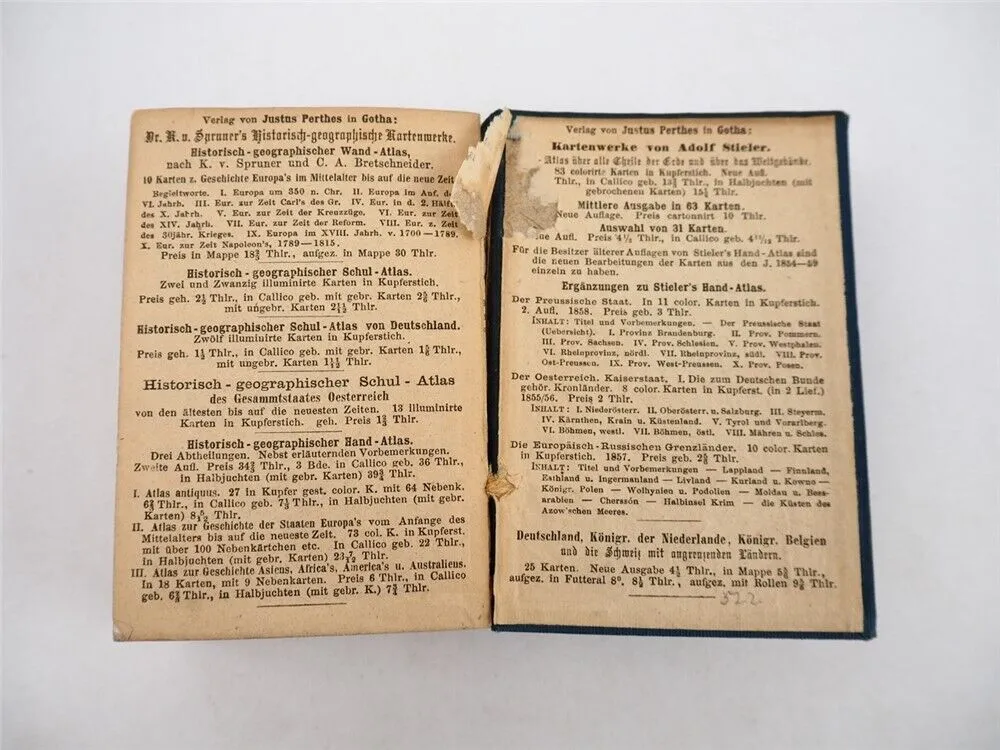 Verlag von Justus Perthes in Gotha:
Dr. K. v. Spruner's Historisch-geographische Kartenwerke.
Historisch-geographischer Wand-Atlas,
nach K. v. Spruner und C. A. Bretschneider.
10 Karten z. Geschichte Europa's im Mittelalter bis auf die neue Zeit
Begleitworte. I. Europa um 350 n. Chr. II. Europa im Anf. de
VI. Jahrh. III. Eur. zur Zeit Carl's des Gr. IV. Eur. in d. 2. Hälf
des X. Jahrh. V. Eur. zur Zeit der Kreuzzüge. VI. Eur. zur Zeit
des XIV. Jahrh. VII. Eur. zur Zeit der Reform. VIII. Eur. z. Zeit
des 30jähr. Krieges. IX. Europa im XVIII. Jahrh. v. 1700—1789.
X. Eur. zur Zeit Napoleon's, 1789—1815.
Preis in Mappe 18⅔ Thlr., aufgez. in Mappe 30 Thlr.
Historisch-geographischer Schul-Atlas.
Zwei und Zwanzig illuminirte Karten in Kupferstich.
Preis geh. 2½ Thlr., in Callico geb. mit gebr. Karten Thlr.,
mit ungebr. Karten 2 11/12 Thlr.
Historisch-geographischer Schul-Atlas von Deutschland.
Zwölf illuminirte Karten in Kupferstich.
Preis geh. 1½ Thlr., in Callico geb. mit gebr. Karten Thlr.,
mit ungebr. Karten 1 11/12 Thlr.
Historisch-geographischer Schul-Atlas
des Gesammtstaates Oesterreich
von den ältesten bis auf die neuesten Zeiten. 13 illuminirte
Karten in Kupferstich. geh. Preis 1⅔ Thlr.
Historisch-geographischer Hand-Atlas.
Drei Abtheilungen. Nebst erläuternden Vorbemerkungen.
Zweite Aufl. Preis 34⅔ Thlr., 3 Bde. in Callico geb. 36 Thlr.,
in Halbjuchten (mit gebr. Karten) 39¾ Thlr.
I. Atlas antiquus. 27 in Kupfer gest. color. K. mit 64 Nebenk.
6⅔ Thlr., in Callico geb. 7⅓ Thlr., in Halbjuchten (mit gebr.
Karten) 8 5/12 Thlr.
II. Atlas zur Geschichte der Staaten Europa's vom Anfange des
Mittelalters bis auf die neueste Zeit. 73 col. K. in Kupferst.
mit über 100 Nebenkärtchen etc. In Callico geb. 22 Thlr.,
in Halbjuchten (mit gebr. Karten) 23 7/12 Thlr.
III. Atlas zur Geschichte Asiens, Africa's, America's u. Australiens.
In 18 Karten, mit 9 Nebenkarten. Preis 6 Thlr., in Callico
geb. 6¾ Thlr., in Halbjuchten (mit gebr. K.) 7¾ Thlr.
Verlag von Justus Perthes in Gotha:
Kartenwerke von Adolf Stieler.
Atlas über alle Theile der Erde und über das Weltgebäude.
83 colorirte Karten in Kupferstich. Neue Aufl.
Thlr., in Callico geb. 13⅔ Thlr., in Halbjuchten (mit
gebrochenen Karten) 15⅓ Thlr.
Mittlere Ausgabe in 63 Karten.
Neue Auflage. Preis cartonnirt 10 Thlr.
Auswahl von 31 Karten.
ue Aufl. Preis 4⅓ Thlr., in Callico geb. 4 11/12 Thlr.
Für die Besitzer älterer Auflagen von Stieler's Hand-Atlas sind
die neuen Bearbeitungen der Karten aus den J. 1854—59
einzeln zu haben.
Ergänzungen zu Stieler's Hand-Atlas.
Der Preussische Staat. In 11 color. Karten in Kupferstich.
2. Aufl. 1858. Preis geb. 3 Thlr.
Inhalt: Titel und Vorbemerkungen. — Der Preussische Staat
(Uebersicht). I. Provinz Brandenburg. II. Prov. Pommern.
III. Prov. Sachsen. IV. Prov. Schlesien. V. Prov. Westphalen.
VI. Rheinprovinz, nördl. VII. Rheinprovinz, südl. VIII. Prov.
Ost-Preussen. IX. Prov. West-Preussen. X. Prov. Posen.
Der Oesterreich. Kaiserstaat. I. Die zum Deutschen Bunde
gehör. Kronländer. 8 color. Karten in Kupferst. (in 2 Lief.)
1855/56. Preis 2 Thlr.
Inhalt: I. Niederösterr. II. Oberösterr. u. Salzburg. III. Steyerm.
IV. Kärnthen, Krain u. Küstenland. V. Tyrol und Vorarlberg.
VI. Böhmen, westl. VII. Böhmen, östl. VIII. Mähren u. Schles.
Die Europäisch-Russischen Grenzländer. 10 color. Karten
in Kupferstich. 1857. Preis geb. Thlr.
Inhalt: Titel und Vorbemerkungen — Lappland — Finnland,
Esthland u. Ingermanland — Livland — Kurland u. Kowno —
Königr. Polen — Wolhynien u. Podolien — Moldau u. Bess-
arabien — Chersson — Halbinsel Krim — die Küsten des
Azow'schen Meeres.
Deutschland, Königr. der Niederlande, Königr. Belgien
und die Schweiz mit angrenzenden Ländern.
25 Karten. Neue Ausgabe 4⅓ Thlr., in Mappe Thlr.,
aufgez. in Futteral 8°. 8⅓ Thlr., aufgez. mit Rollen Thlr.
522